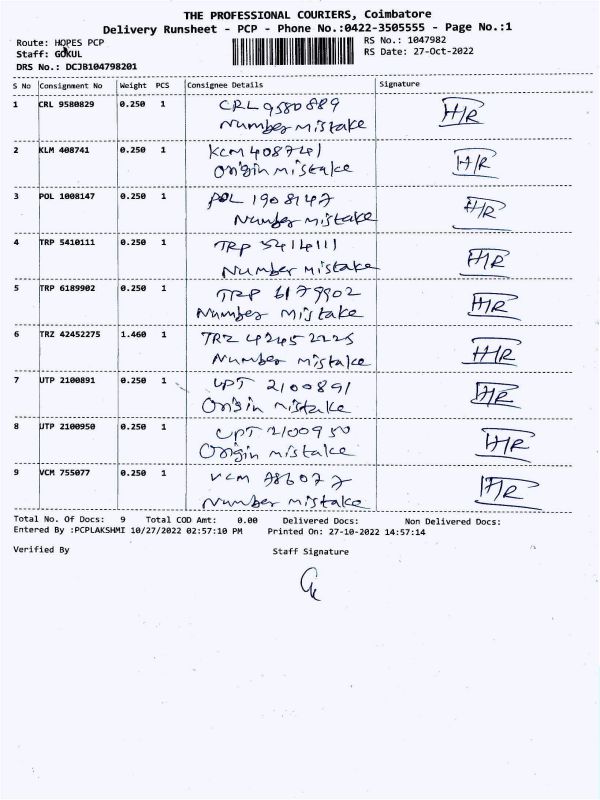 THE PROFESSIONAL COURIERS, Coimbatore
Delivery Runsheet - PCP - Phone No.:0422-3505555 - Page No.:1
Route: HOPES PCP
Staff: GOKUL
DRS No.: DCJB104798201
RS No.: 1047982
RS Date: 27-Oct-2022
S No Consignment No Weight PCS Consignee Details Signature
1 CRL 9580829 0.250 1 CRL 9580889 H/R
Number mistake
2 KLM 408741 0.250 1 KCM 408741 H/R
Origin mistake
3 POL 1008147 0.250 1 POL 1908147 H/R
Number mistake
4 TRP 5410111 0.250 1 TRP 5414111 H/R
Number mistake
5 TRP 6189902 0.250 1 TRP 6179902 H/R
Number mistake
6 TRZ 42452275 1.460 1 TRZ 42452225 H/R
Number mistake
7 UTP 2100891 0.250 1 UPT 2100891 H/R
Origin mistake
8 UTP 2100950 0.250 1 UPT 2100950 H/R
Origin mistake
9 VCM 755077 0.250 1 VCM H/R
Number mistake
Total No. Of Docs: 9 Total COD Amt: 0.00 Delivered Docs: Non Delivered Docs:
Entered By :PCPLAKSHMI 10/27/2022 02:57:10 PM Printed On: 27-10-2022 14:57:14
Verified By Staff Signature